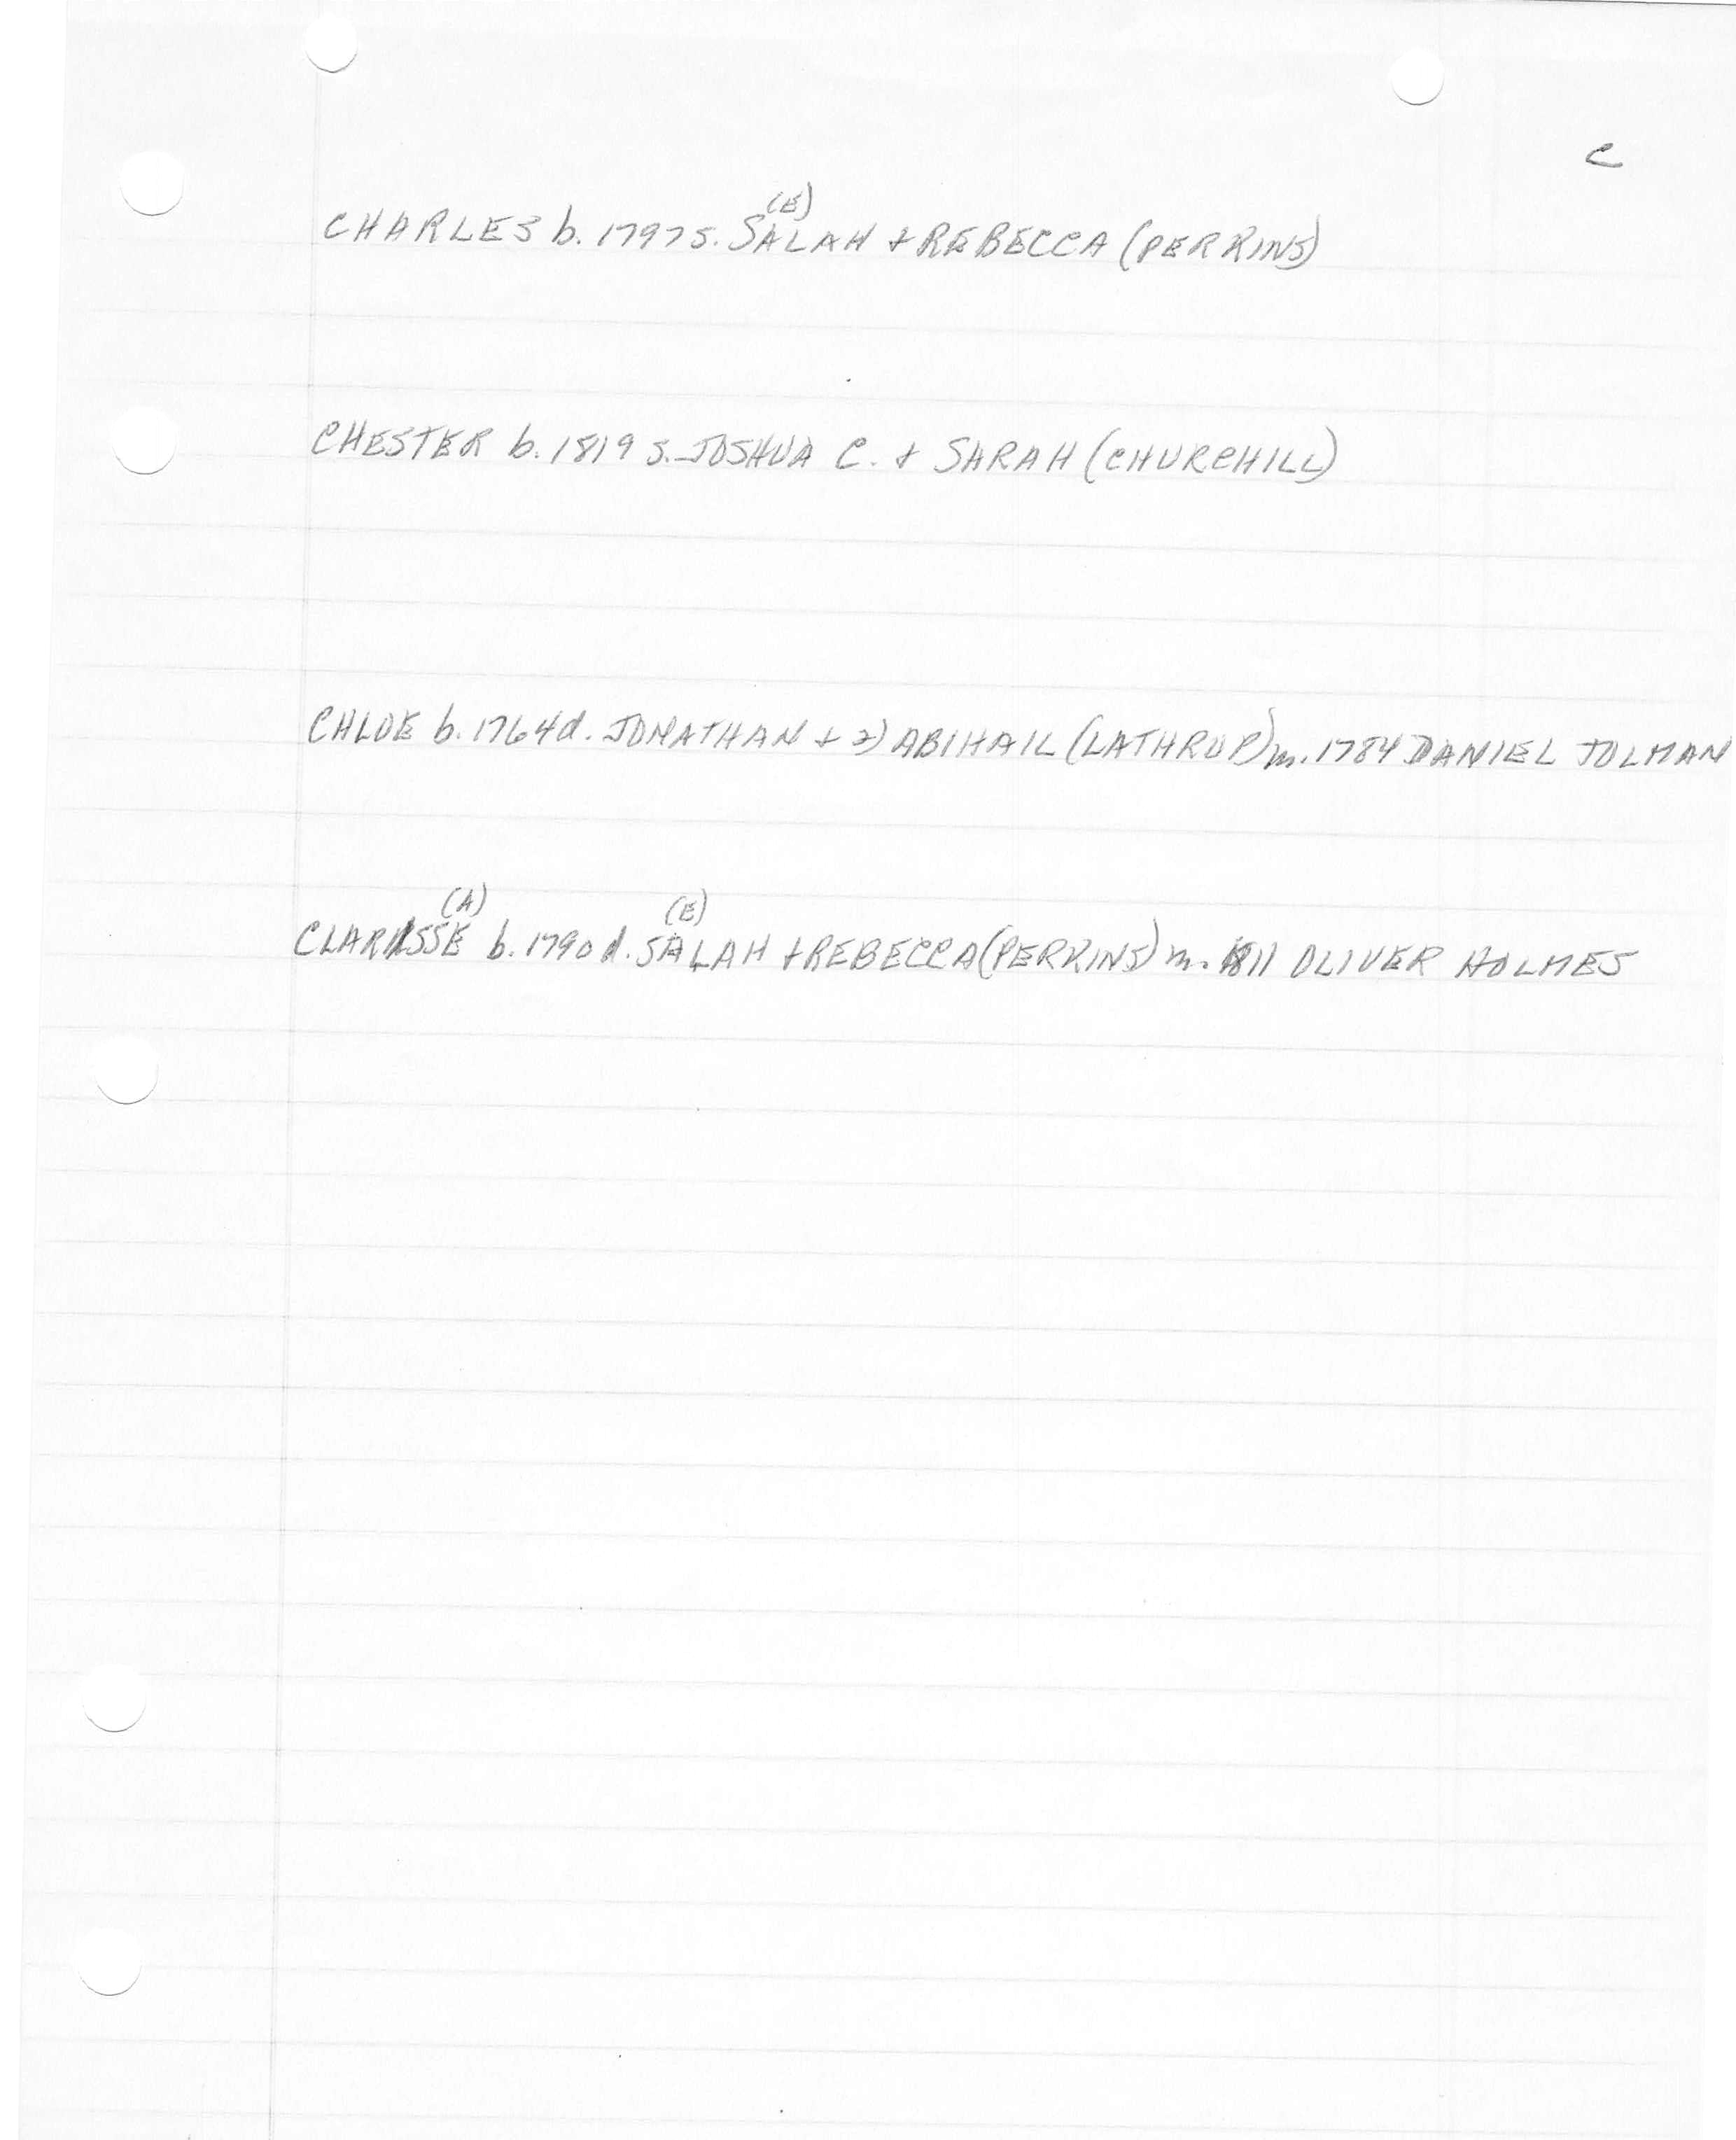 C
(E)
CHARLES b. 1797 s. SALAH + REBECCA (PERKINS)
CHESTER b. 1819 s. JOSHUA C. + SARAH (CHURCHILL)
CHLOE b. 1764 d. JONATHAN + 2) ABIHAIL (LATHROP) m. 1784 DANIEL TOLMAN
(A) (E)
CLARISSE b. 1790 d. SALAH + REBECCA (PERKINS) m. 1811 OLIVER HOLMES